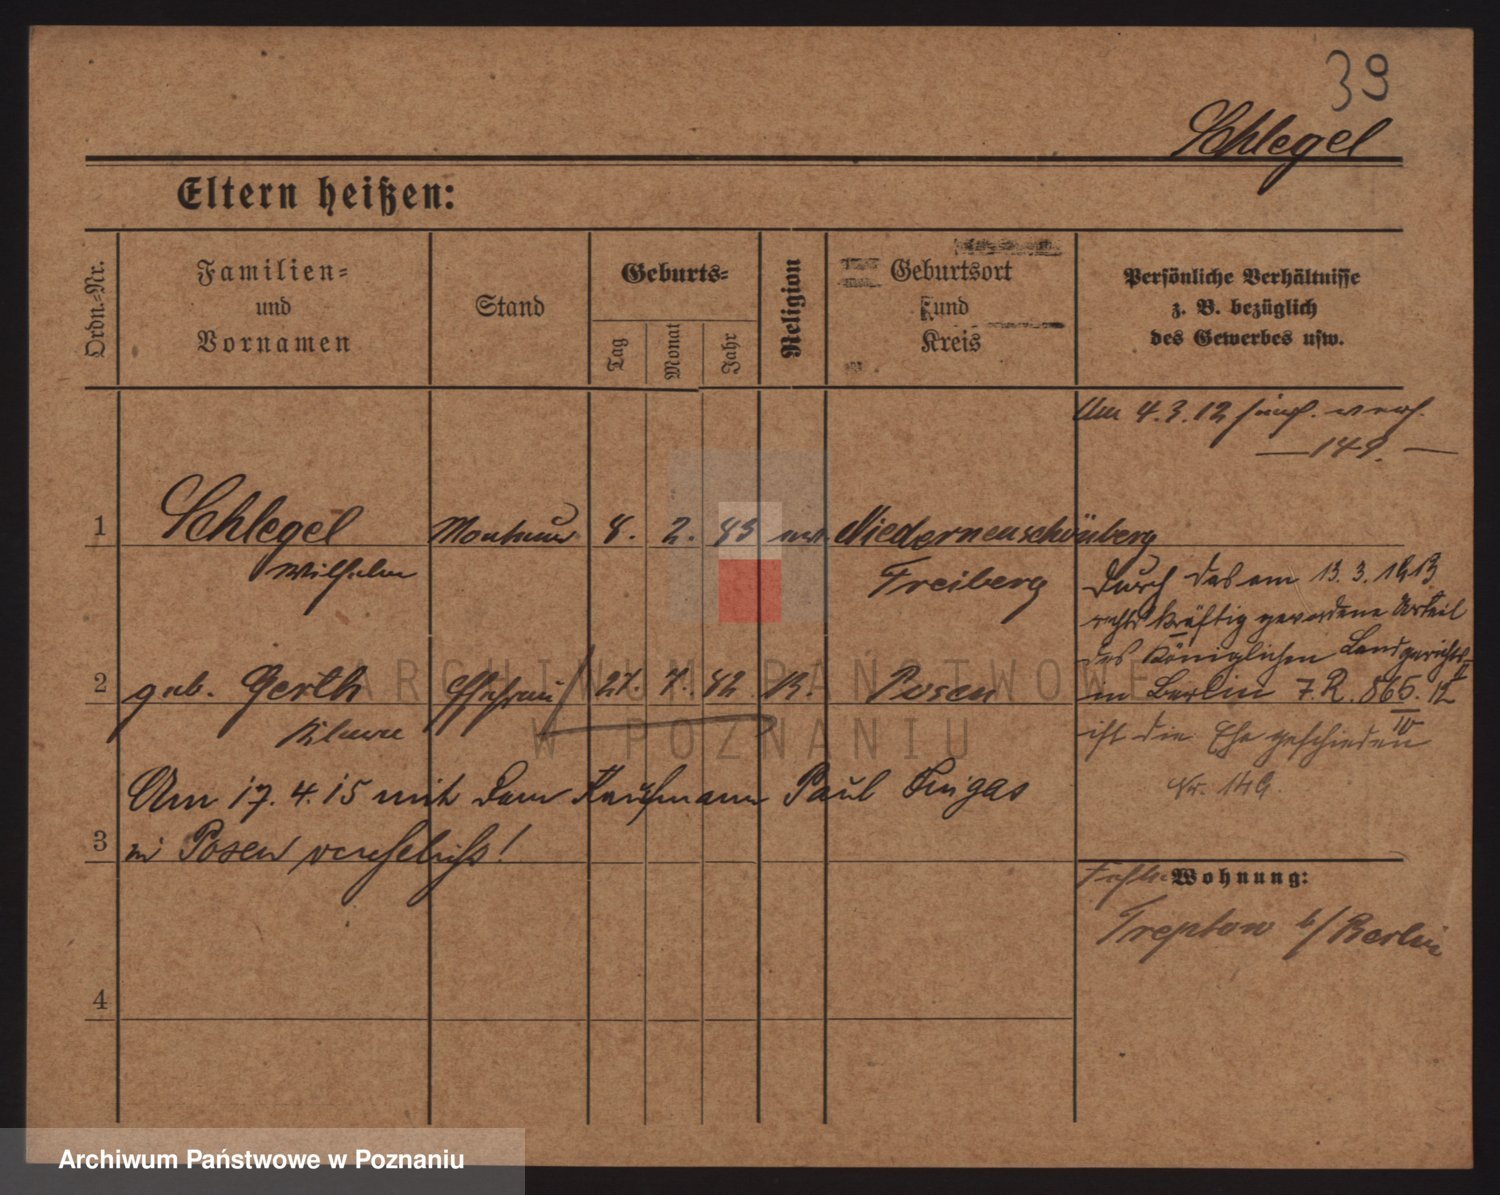 39
Schlegel
Eltern heißen:
Ordn.-Nr.
Familien-
und
Vornamen
Stand
Geburts-
Tag
Monat
Jahr
Religion
Geburtsort
und
Kreis
Persönliche Verhältnisse
z. B. bezüglich
des Gewerbes usw.
Am 4.3.12
149.
1 Schlegel Monteur 8. 2. 83 Niederneuschönberg
Wilhelm Freiberg
Durch das am 13.3.1913
rechtskräftig gewordene Urteil
des Königlichen Landgerichts
II in Berlin 7. R. 565. 12
10
ist die Ehe geschieden
Nr. 149.
2 geb. Gerth Ehefrau 27. 7. 82 K. Posen
Klara
Am 17.4.15 mit dem Kaufmann Paul
3 in Posen verehelicht!
Wohnung:
Treptow b/Berlin
4
ARCHIWUM PAŃSTWOWE
W POZNANIU
Archiwum Państwowe w Poznaniu